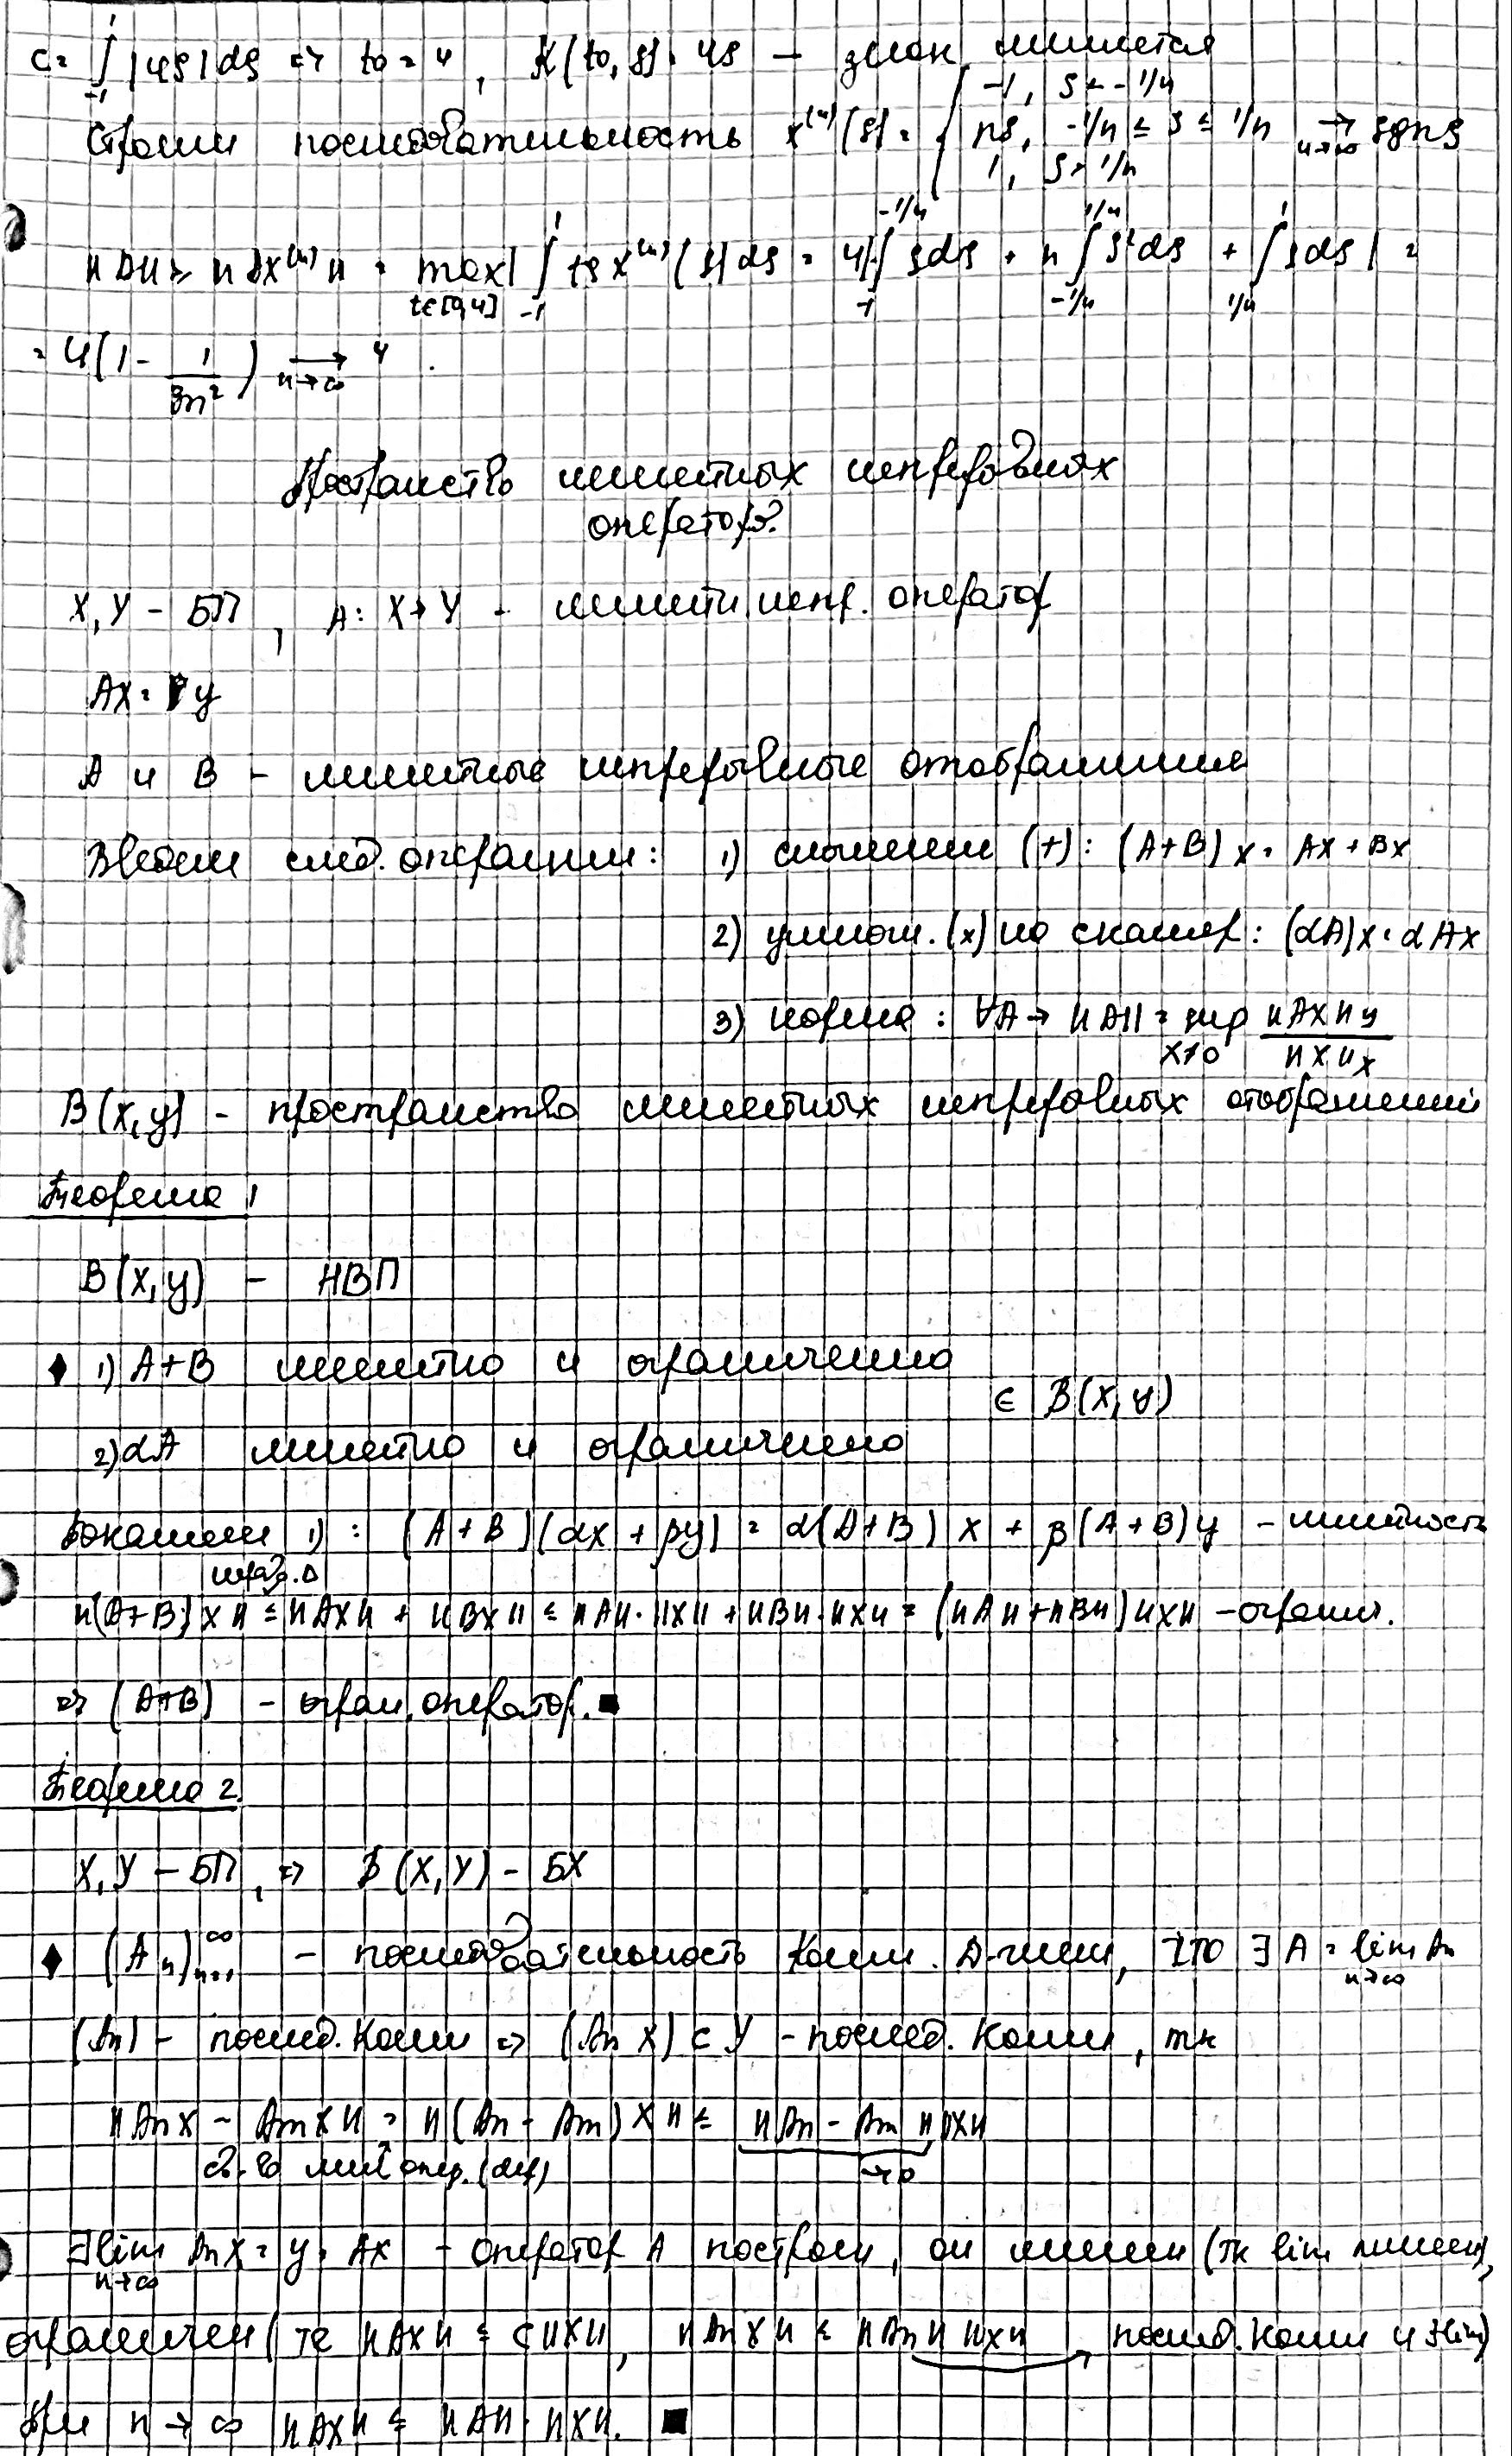 c = ∫_{-1}^{1} |4s| ds => t₀ = 4, K(t₀, s) = 4s — знак меняется
Строим последовательность x^{(n)}(s) = { -1, s < -1/n ; ns, -1/n ≤ s ≤ 1/n ; 1, s > 1/n →_{n→∞} sgn s
‖A‖ ≥ ‖Ax^{(n)}‖ = max_{t∈[0,4]} | ∫_{-1}^{1} ts x^{(n)}(s) ds = 4|-∫_{-1}^{-1/n} s ds + n ∫_{-1/n}^{1/n} s² ds + ∫_{1/n}^{1} s ds | =
= 4(1 - 1/3n²) →_{n→∞} 4
Пространство линейных непрерывных
операторов
X, Y - БП, A: X → Y - линейн. непр. оператор
Ax = y
A и B - линейные непрерывные отображения
Введем след. операции: 1) сложение (+): (A+B)x = Ax + Bx
2) умнож. (x) на скаляр: (αA)x = αAx
3) норма: ∀A → ‖A‖ = sup_{x≠0} ‖Ax‖_y / ‖x‖_x
B(X, Y) - пространство линейных непрерывных отображений
Теорема 1
B(X, Y) - НВП
♦ 1) A+B линейно и ограничено
∈ B(X, Y)
2) αA линейно и ограничено
Докажем 1): (A+B)(αx + βy) = α(A+B)x + β(A+B)y - линейность
нерав. Δ
‖(A+B)x‖ ≤ ‖Ax‖ + ‖Bx‖ ≤ ‖A‖·‖x‖ + ‖B‖·‖x‖ = (‖A‖+‖B‖)‖x‖ - огранич.
=> (A+B) - огран. оператор. ■
Теорема 2
X, Y - БП, => B(X, Y) - БХ
♦ (A_n)_{n=1}^{∞} - последовательность Коши. Д-жем, что ∃ A = lim_{n→∞} A_n
(A_n) - послед. Коши => (A_n x) ⊂ Y - послед. Коши, тк
‖A_n x - A_m x‖ = ‖(A_n - A_m)x‖ ≤ ‖A_n - A_m‖ ‖x‖
св-во лин. опер. (def) → 0
∃ lim_{n→∞} A_n x = y = Ax - оператор A построен, он линеен (тк lim линеен),
ограничен (те ‖Ax‖ ≤ c‖x‖, ‖A_n x‖ ≤ ‖A_n‖ ‖x‖, послед. Коши и ∃ lim)
При n → ∞ ‖Ax‖ ≤ ‖A‖·‖x‖. ■